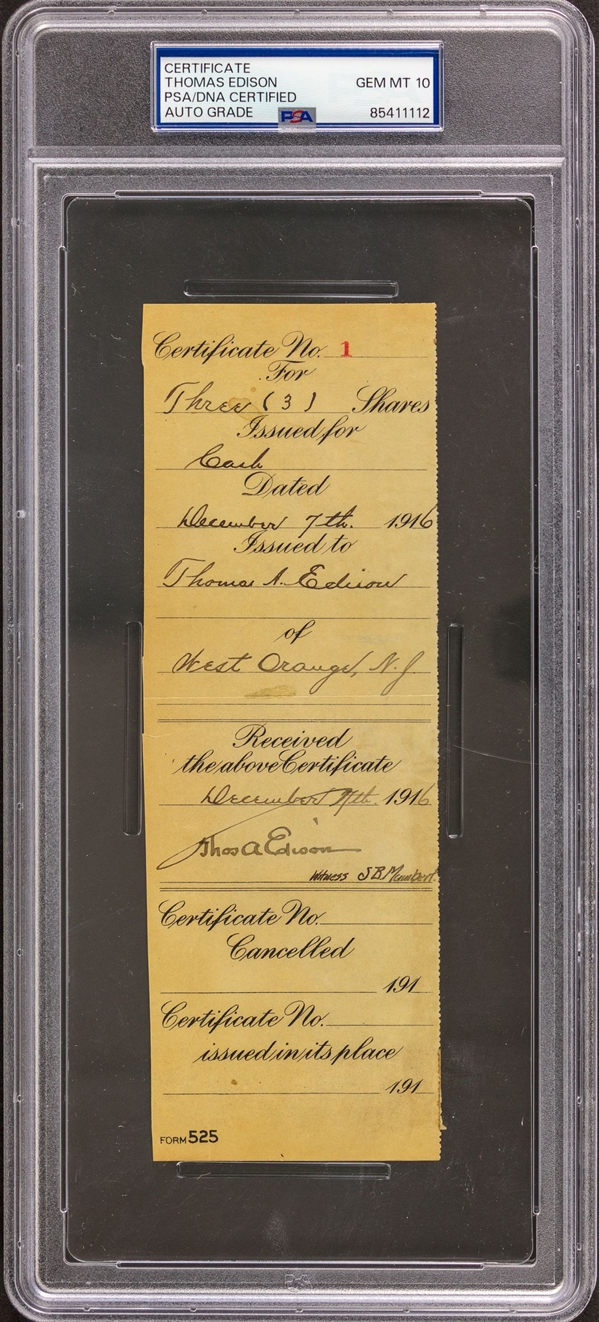 CERTIFICATE
THOMAS EDISON GEM MT 10
PSA/DNA CERTIFIED
AUTO GRADE PSA 85411112
Certificate No. 1
For
Three (3) Shares
Issued for
Cash
Dated
December 7th. 1916
Issued to
Thomas A. Edison
of
West Orange, N.J.
Received
the above Certificate
December 7th. 1916
Thos A Edison
Witness S.B.
Certificate No.
Cancelled
191
Certificate No.
issued in its place
191
FORM 525